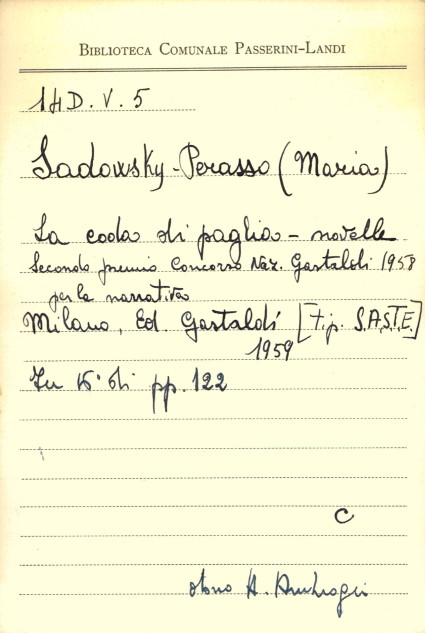 BIBLIOTECA COMUNALE PASSERINI-LANDI
14D.V.5
Sadowsky-Perasso (Maria)
La coda di paglia - novelle
Secondo premio Concorso Naz. Gastaldi 1958
per la narrativa
Milano, Ed. Gastaldi [Tip. S.A.S.T.E.]
1959
In 16° di pp. 122
C
dono A. Ambrogi